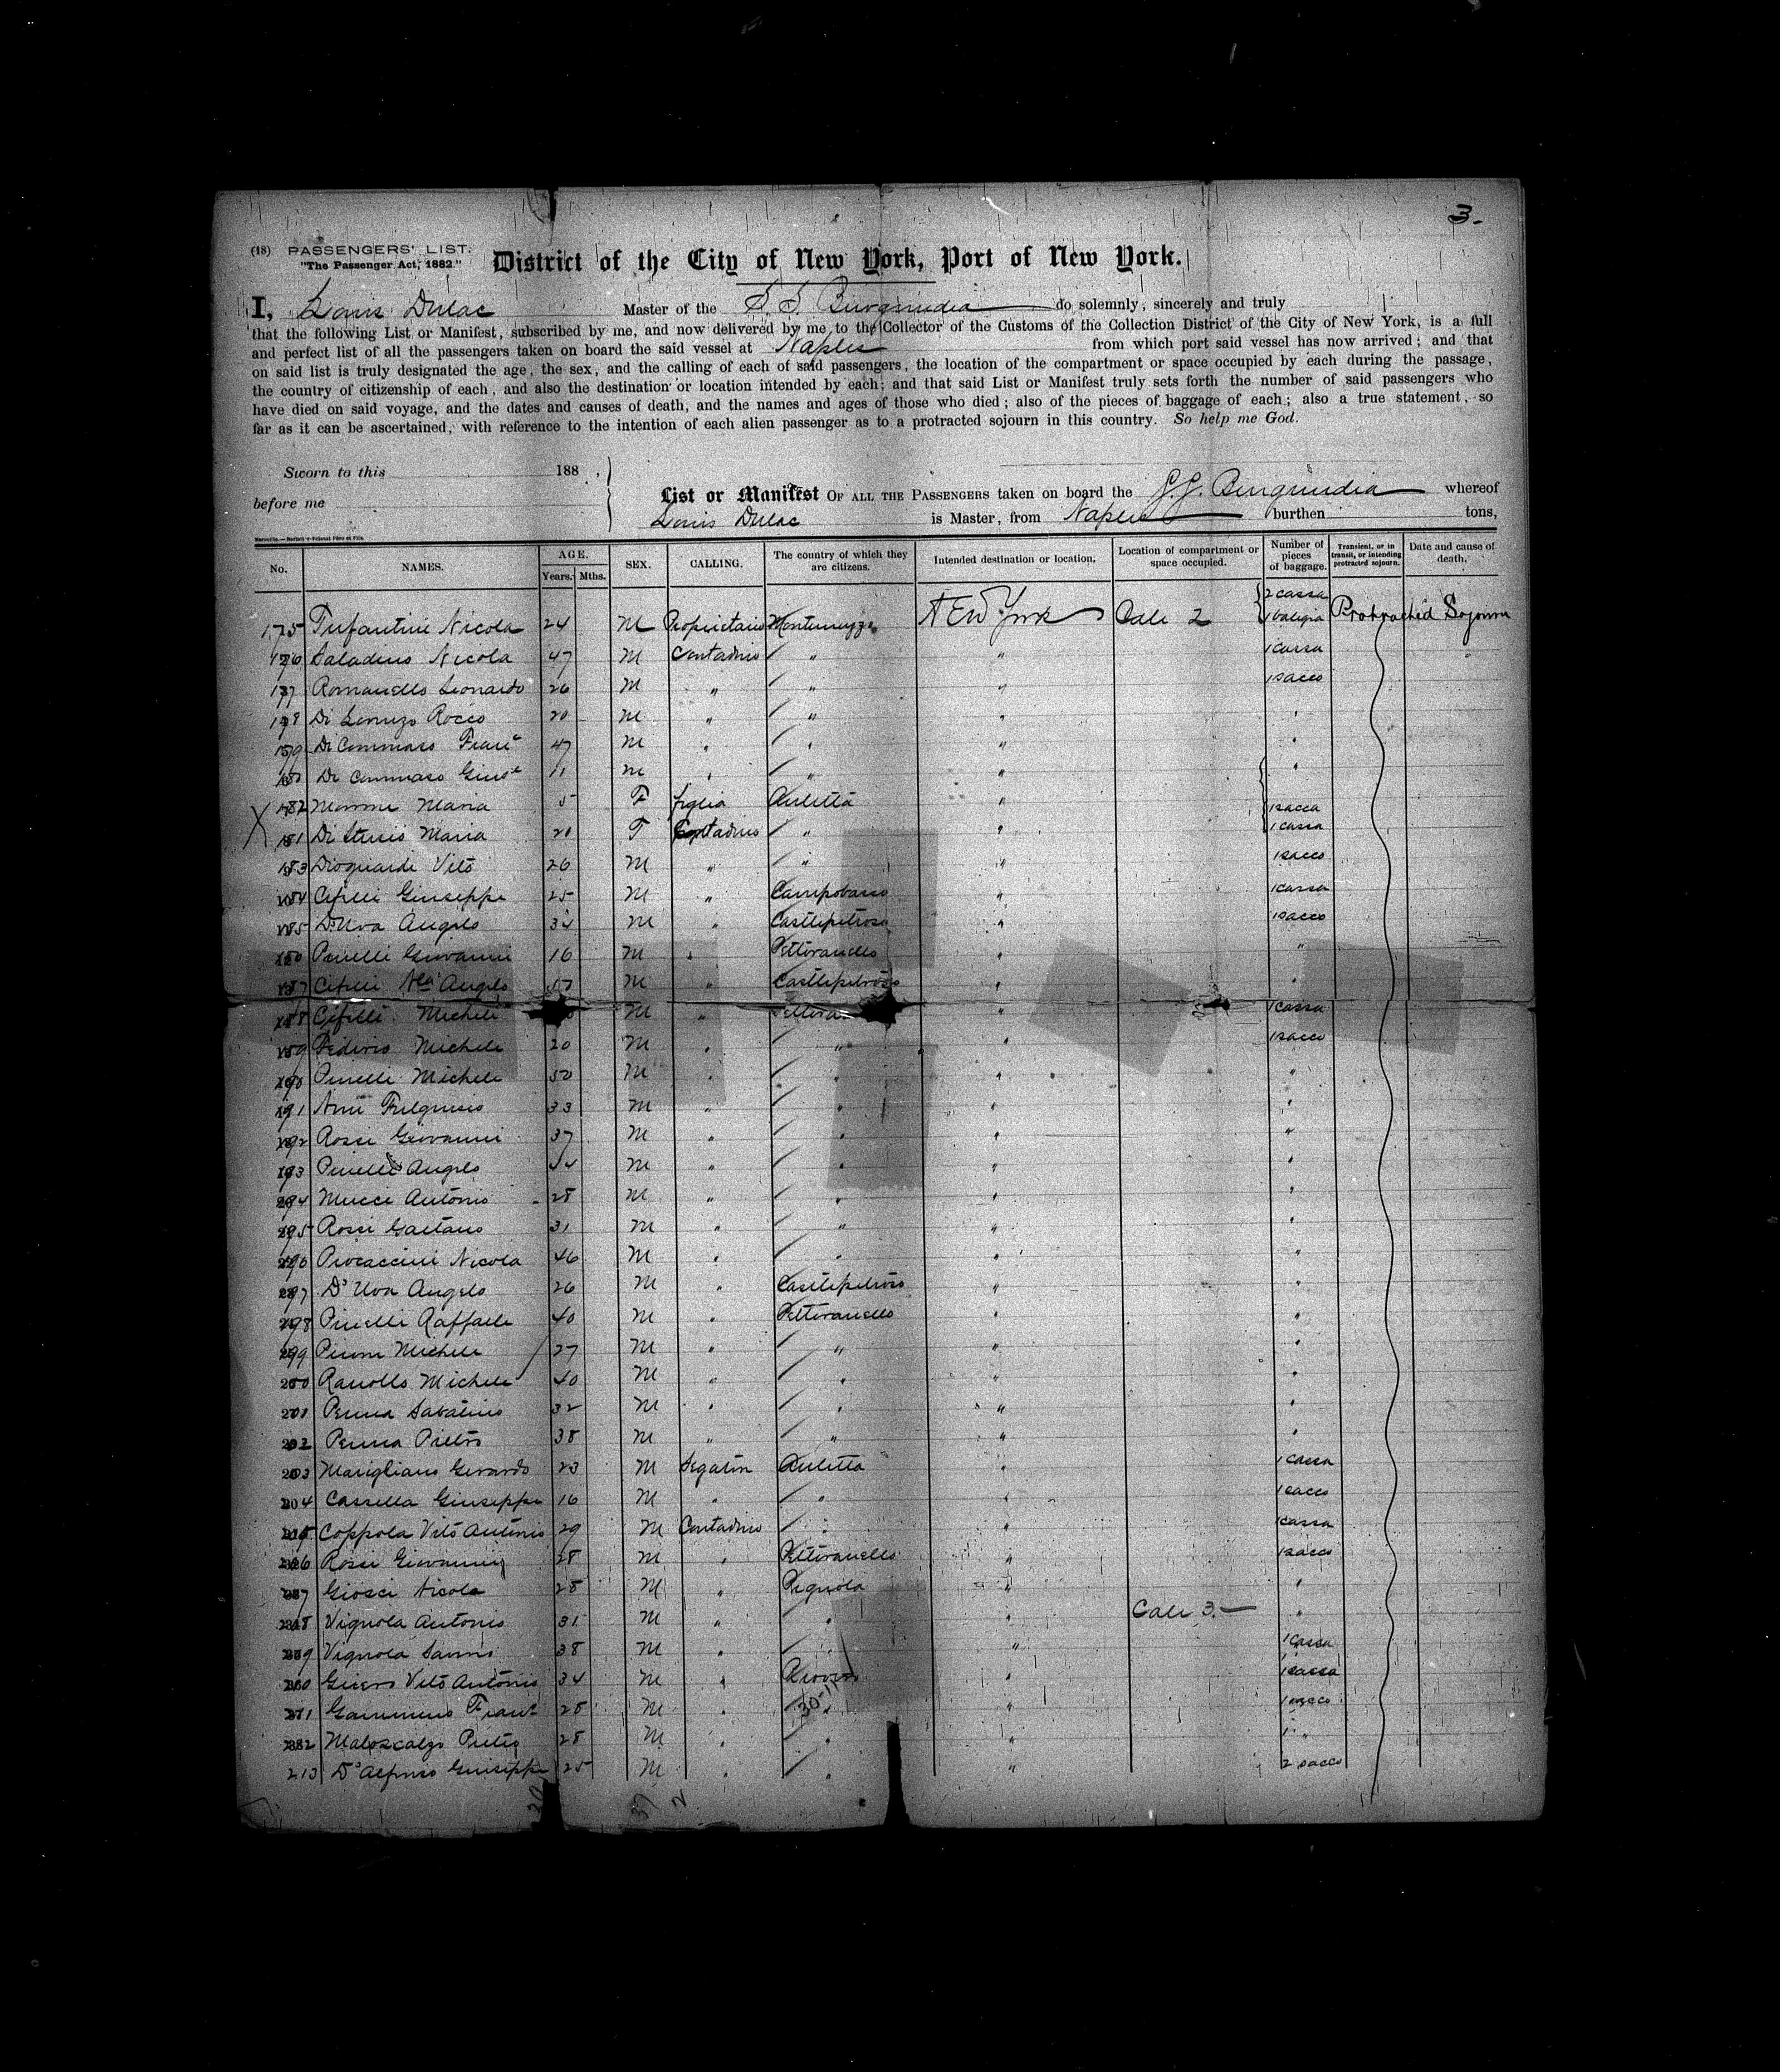 3.
(18) PASSENGERS' LIST.
"The Passenger Act, 1882."
District of the City of New York, Port of New York.
I, Louis Dulac Master of the S. S. Burgundia do solemnly, sincerely and truly
that the following List or Manifest, subscribed by me, and now delivered by me to the Collector of the Customs of the Collection District of the City of New York, is a full
and perfect list of all the passengers taken on board the said vessel at Naples from which port said vessel has now arrived; and that
on said list is truly designated the age, the sex, and the calling of each of said passengers, the location of the compartment or space occupied by each during the passage,
the country of citizenship of each, and also the destination or location intended by each; and that said List or Manifest truly sets forth the number of said passengers who
have died on said voyage, and the dates and causes of death, and the names and ages of those who died; also of the pieces of baggage of each; also a true statement, so
far as it can be ascertained, with reference to the intention of each alien passenger as to a protracted sojourn in this country. So help me God.
Sworn to this 188 ,
before me
List or Manifest OF ALL THE PASSENGERS taken on board the S.S. Burgundia whereof
Louis Dulac is Master, from Naples burthen tons,
No. NAMES. AGE. Years. Mths. SEX. CALLING. The country of which they are citizens. Intended destination or location. Location of compartment or space occupied. Number of pieces of baggage. Transient, or in transit, or intending protracted sojourn. Date and cause of death.
175 Nicola 24 M Proprietario New York Cale 2 2 cassa 1 valigia Protracted Sojourn
176 Saladino Nicola 47 M Contadino " " 1 cassa
177 Romanello Leonardo 26 M " " " 1 sacco
178 Di Lorenzo Rocco 20 M " " " "
179 Di Commaso 47 M " " " "
180 Di Commaso Gius^e 11 M " " " "
182 Maria 5 F figlia Auletta "
181 Maria 21 F Contadino " " 1 sacca 1 cassa
183 Dioguardi Vito 26 M " " " 1 sacco
184 Cifelli Giuseppe 25 M " Campobasso " 1 cassa
185 D'Uva Angelo 34 M " Castlepetroso " 1 sacco
186 Pinelli Giovanni 16 M " Pettoranello " "
187 Cifelli Angelo M " Castlepetroso " "
188 Cifelli Michele M " " 1 cassa
189 Michele 20 M " " " 1 sacco
190 Pinelli Michele 50 M " " " "
191 33 M " " " "
192 Rossi Giovanni 37 M " " " "
193 Pinelli Angelo M " " " "
194 Mucci Antonio 28 M " " " "
195 Rossi Gaetano 31 M " " " "
196 Nicola 46 M " " " "
197 D'Uva Angelo 26 M " Castlepetroso " "
198 Pinelli Raffaele 40 M " Pettoranello " "
199 Michele 27 M " " " "
200 Michele 40 M " " " "
201 Penna Sabatino 32 M " " " "
202 Penna Pietro 38 M " " " "
203 Marigliano Gerardo 23 M Auletta " 1 cassa
204 Cassella Giuseppe 16 M " " " 1 sacco
205 Coppola Vito Antonio 29 M Contadino " " 1 cassa
206 Rossi Giovanni 28 M " Pettoranello " 1 sacco
207 Giosci Nicola 28 M " Pignola " "
208 Vignola Antonio 31 M " " " Cale 3. "
209 Vignola Savino 38 M " " " 1 cassa
210 Vito Antonio 34 M " " 1 cassa
211 28 M " " 1 sacco
212 Maloscalzo Pietro 28 M " " " 1 "
213 D'Alfonso Giuseppe 25 M " " " 2 sacco